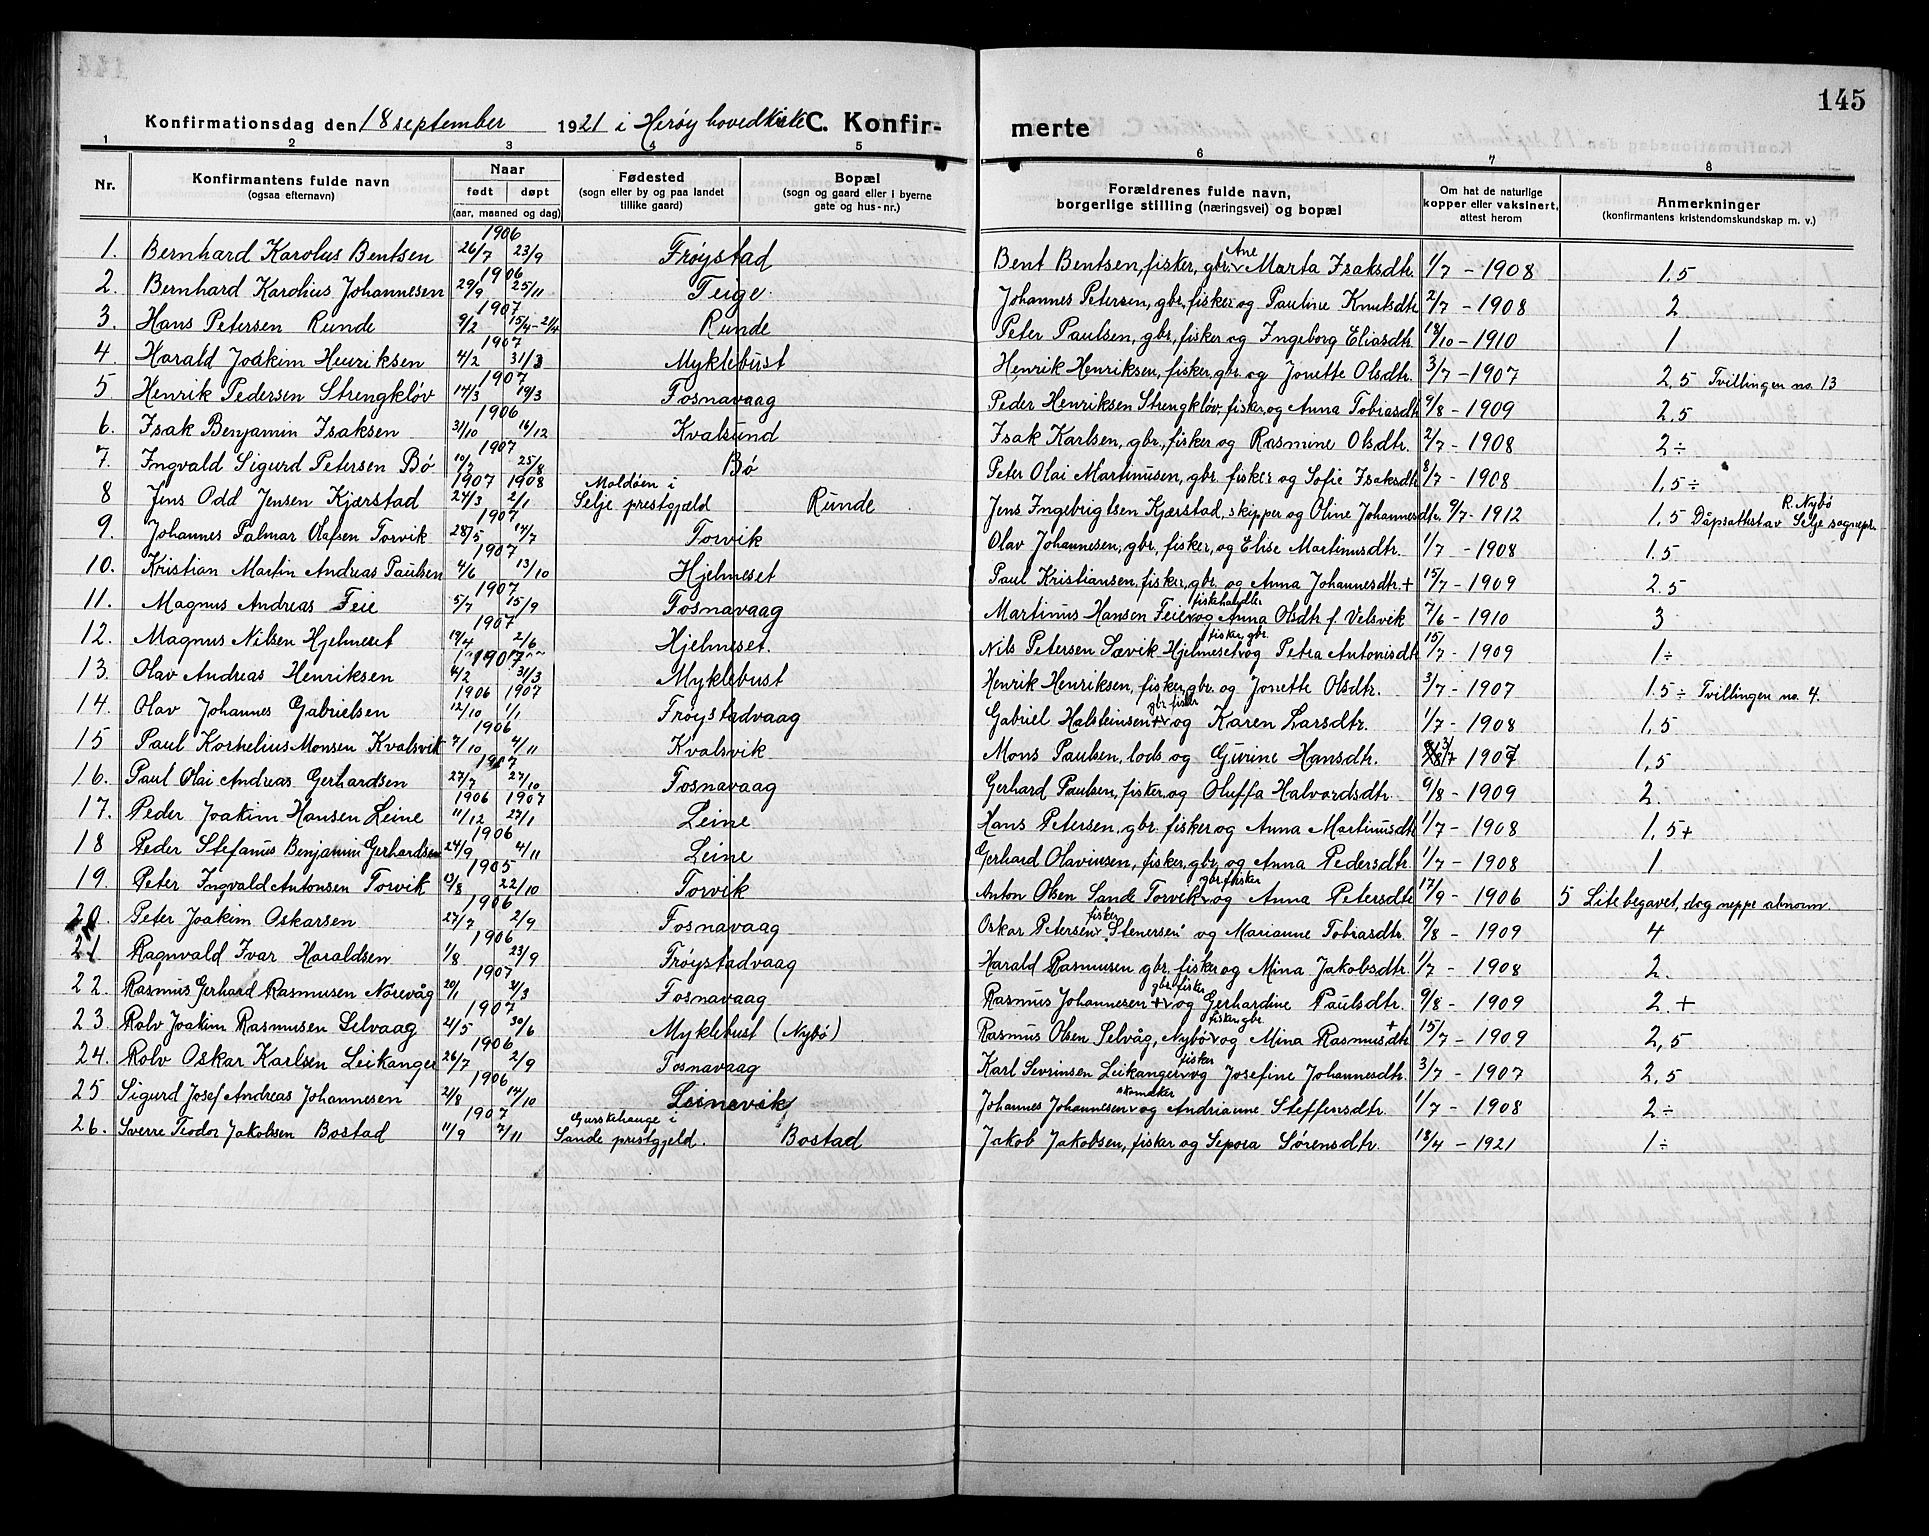 145
Konfirmationsdag den 18 september 1921 i Herøy hovedkirke C. Konfir- merte
1 2 3 4 5 6 7 8
Nr. Konfirmantens fulde navn (ogsaa efternavn) Naar født døpt (aar, maaned og dag) Fødested (sogn eller by og paa landet tillike gaard) Bopæl (sogn og gaard eller i byerne gate og hus-nr.) Forældrenes fulde navn, borgerlige stilling (næringsvei) og bopæl Om hat de naturlige kopper eller vaksinert, attest herom Anmerkninger (konfirmantens kristendomskundskap m. v.)
1. Bernhard Karolus Bentsen 1906 26/7 23/9 Frøystad Bent Bentsen, fisker, gbr. v Ane Marta Isaksdtr. 1/7 - 1908 1,5
2. Bernhard Karolius Johannesen 1906 29/9 25/11 Teige Johannes Petersen, gbr. fisker og Pauline Knutsdtr. 2/7 - 1908 2
3. Hans Petersen Runde 1907 9/2 15/4 - 2/4 Runde Peter Paulsen, gbr, fisker og Ingeborg Eliasdtr. 18/10 - 1910 1
4 Harald Joakim Henriksen 1907 4/2 31/3 Myklebust Henrik Henriksen, fisker, gbr. og Jonette Olsdtr. 3/7 - 1907 2,5 Tvillingen no. 13
5 Henrik Pedersen Strengkløv 1907 14/3 19/3 Fosnavaag Peder Henriksen Strengkløv, fisker, og Anna Tobiasdtr 9/8 - 1909 2.5
6. Isak Benjamin Isaksen 1906 31/10 16/12 Kvalsund Isak Karlsen, gbr., fisker og Rasmine Olsdtr. 2/7 - 1908 2 ÷
7. Ingvald Sigurd Petersen Bø 1907 10/7 25/8 Bø Peter Olai Martinusen, gbr. fisker og Sofie Isaksdtr 8/7 - 1908 1,5 ÷
8 Jens Odd Jensen Kjærstad 1907 24/3 1908 2/1 Moldøen i Selje prestgjeld Runde Jens Ingebrigtsen Kjærstad, skipper og Oline Johannesdtr. 9/7 - 1912 1,5 Dåpsattest av R. Nybø Selje sognepr.
9. Johannes Falmar Olafsen Torvik 1907 28/5 14/7 Torvik Olav Johannesen, gbr., fisker, og Elise Martinusdtr. 1/7 - 1908 1.5
10. Kristian Martin Andreas Paulsen 1907 4/6 13/10 Hjelmeset Paul Kristiansen, fisker, gbr. og Anna Johannesdtr + 15/7 - 1909 2.5
11. Magnus Andreas Teie 1907 5/7 15/9 Fosnavaag Martinus Hansen Teie v og fiskehandler Anna Olsdtr f. Velsvik 7/6 - 1910 3
12. Magnus Nilsen Hjelmeset 1907 19/4 2/6 Hjelmeset. Nils Petersen Sævik Hjelmeset v og fisker gbr. Petra Antonisdtr 15/7 - 1909 1 ÷
13. Olav Andreas Henriksen 1907 4/2 31/3 Myklebust Henrik Henriksen, fisker, gbr. og Jonette Olsdtr. 3/7 - 1907 1.5 ÷ Tvillingen no. 4.
14. Olav Johannes Gabrielsen 1906 12/10 1907 1/1 Frøystadvaag Gabriel Halsteinsen + v gbr fisker og Karen Larsdtr. 1/7 - 1908 1,5
15 Paul Kornelius Monsen Kvalsvik 1906 7/10 4/11 Kvalsvik Mons Paulsen, lods og Gurine Hansdtr. 3/7 1907 1,5
16. Paul Olai Andreas Gerhardsen 1907 27/7 27/10 Fosnavaag Gerhard Paulsen, fisker, og Oluffa Halvardsdtr. 9/8 - 1909 2.
17. Peder Joakim Hansen Leine 1906 11/12 1907 27/1 Leine Hans Petersen, gbr. fisker og Anna Martinusdtr 1/7 - 1908 1,5+
18 Peder Stefanus Benjamin Gerhardsen 1906 24/9 4/11 Leine Gerhard Olavinsen, fisker, gbr. og Anna Pedersdtr. 1/7 - 1908 1
19. Peter Ingvald Antonsen Torvik 1905 13/8 22/10 Torvik Anton Olsen Sande Torvik v og gbr. fisker Anna Petersdtr 17/9 - 1906 5 Lite begavet, dog neppe abnorm.
20. Peter Joakim Oskarsen 1906 27/7 2/9 Fosnavaag Oskar Petersen v fisker "Stenersen" og Marianne Tobiasdtr. 9/8 - 1909 4
21 Ragnvald Ivar Haraldsen 1906 1/8 23/9 Frøystadvaag Harald Rasmusen gbr. fisker og Mina Jakobsdtr. 1/7 - 1908 2.
22. Rasmus Gerhard Rasmusen Norevåg 1907 20/1 3/3 Fosnavaag Rasmus Johannesen + v gbr. fisker og Gerhardine Paulsdtr. 9/8 - 1909 2. +
23 Rolv Joakim Rasmusen Selvaag 1907 21/5 30/6 Myklebust (Nybø) Rasmus Olsen Selvåg, Nybø v og fisker gbr. Mina Rasmusdtr + 15/7 - 1909 2,5
24. Rolv Oskar Karlsen Leikanger 1906 26/7 2/9 Fosnavaag Karl Sevrinsen Leikanger v og fisker Josefine Johannesdtr. 3/7 - 1907 2,5
25 Sigurd Josef Andreas Johannesen 1906 21/8 14/10 Leinevik Johannes Johannesen v og skomaker Andrianne Steffensdtr. 1/7 - 1908 2 ÷
26. Sverre Teodor Jakobsen Bostad 1907 11/9 7/11 Gurskehauge i Sande prestgjeld. Bostad Jakob Jakobsen, fisker og Sepora Sørensdtr. 18/4 - 1921 1 ÷